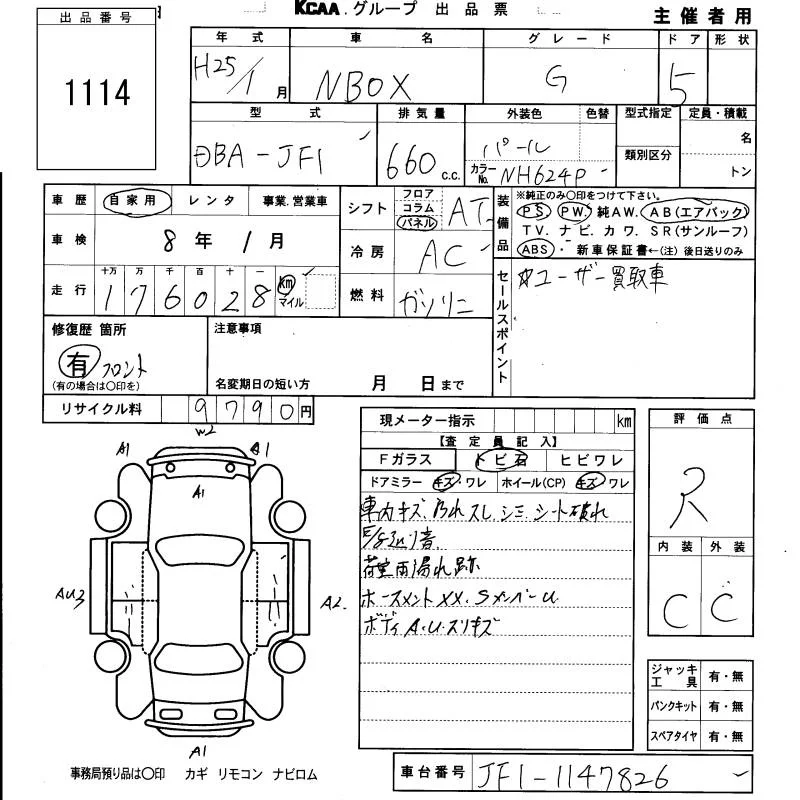 KCAA.グループ 出品票
主催者用
出品番号
1114
年式 車名 グレード ドア 形状
H25/1月 NBOX G 5
型式 排気量 外装色 色替 型式指定 定員・積載
DBA-JF1 660 c.c. パール 類別区分 名
カラーNo. NH624P トン
車歴 自家用 レンタ 事業.営業車
シフト フロア コラム パネル AT
装備品
※純正のみ○印をつけて下さい。
PS PW. 純AW. AB(エアバック)
TV. ナビ. カワ. SR(サンルーフ)
ABS・ 新車保証書←(注) 後日送りのみ
車検 8年1月
冷房 AC
走行 十万 万 千 百 十 一
176028 km マイル
燃料 ガソリン
セールスポイント
☆ユーザー買取車
修復歴 箇所
有 フロント
(有の場合は○印を)
注意事項
名変期日の短い方 月 日まで
リサイクル料 9790円
現メーター指示 km
【査定員記入】
Fガラス トビ石 ヒビワレ
ドアミラー キズ・ワレ ホイール(CP) キズ・ワレ
車内キズ.汚れ スレ.シミ.シート破れ
荷室雨漏れ跡
ホースメントXX.SメンバーU
ボディA.U.スリキズ
評価点
R
内装 外装
C C
W2
A1 A1
A1
AU3 A2.
A1
ジャッキ工具 有・無
パンクキット 有・無
スペアタイヤ 有・無
事務局預り品は○印 カギ リモコン ナビロム
車台番号 JF1-1147826